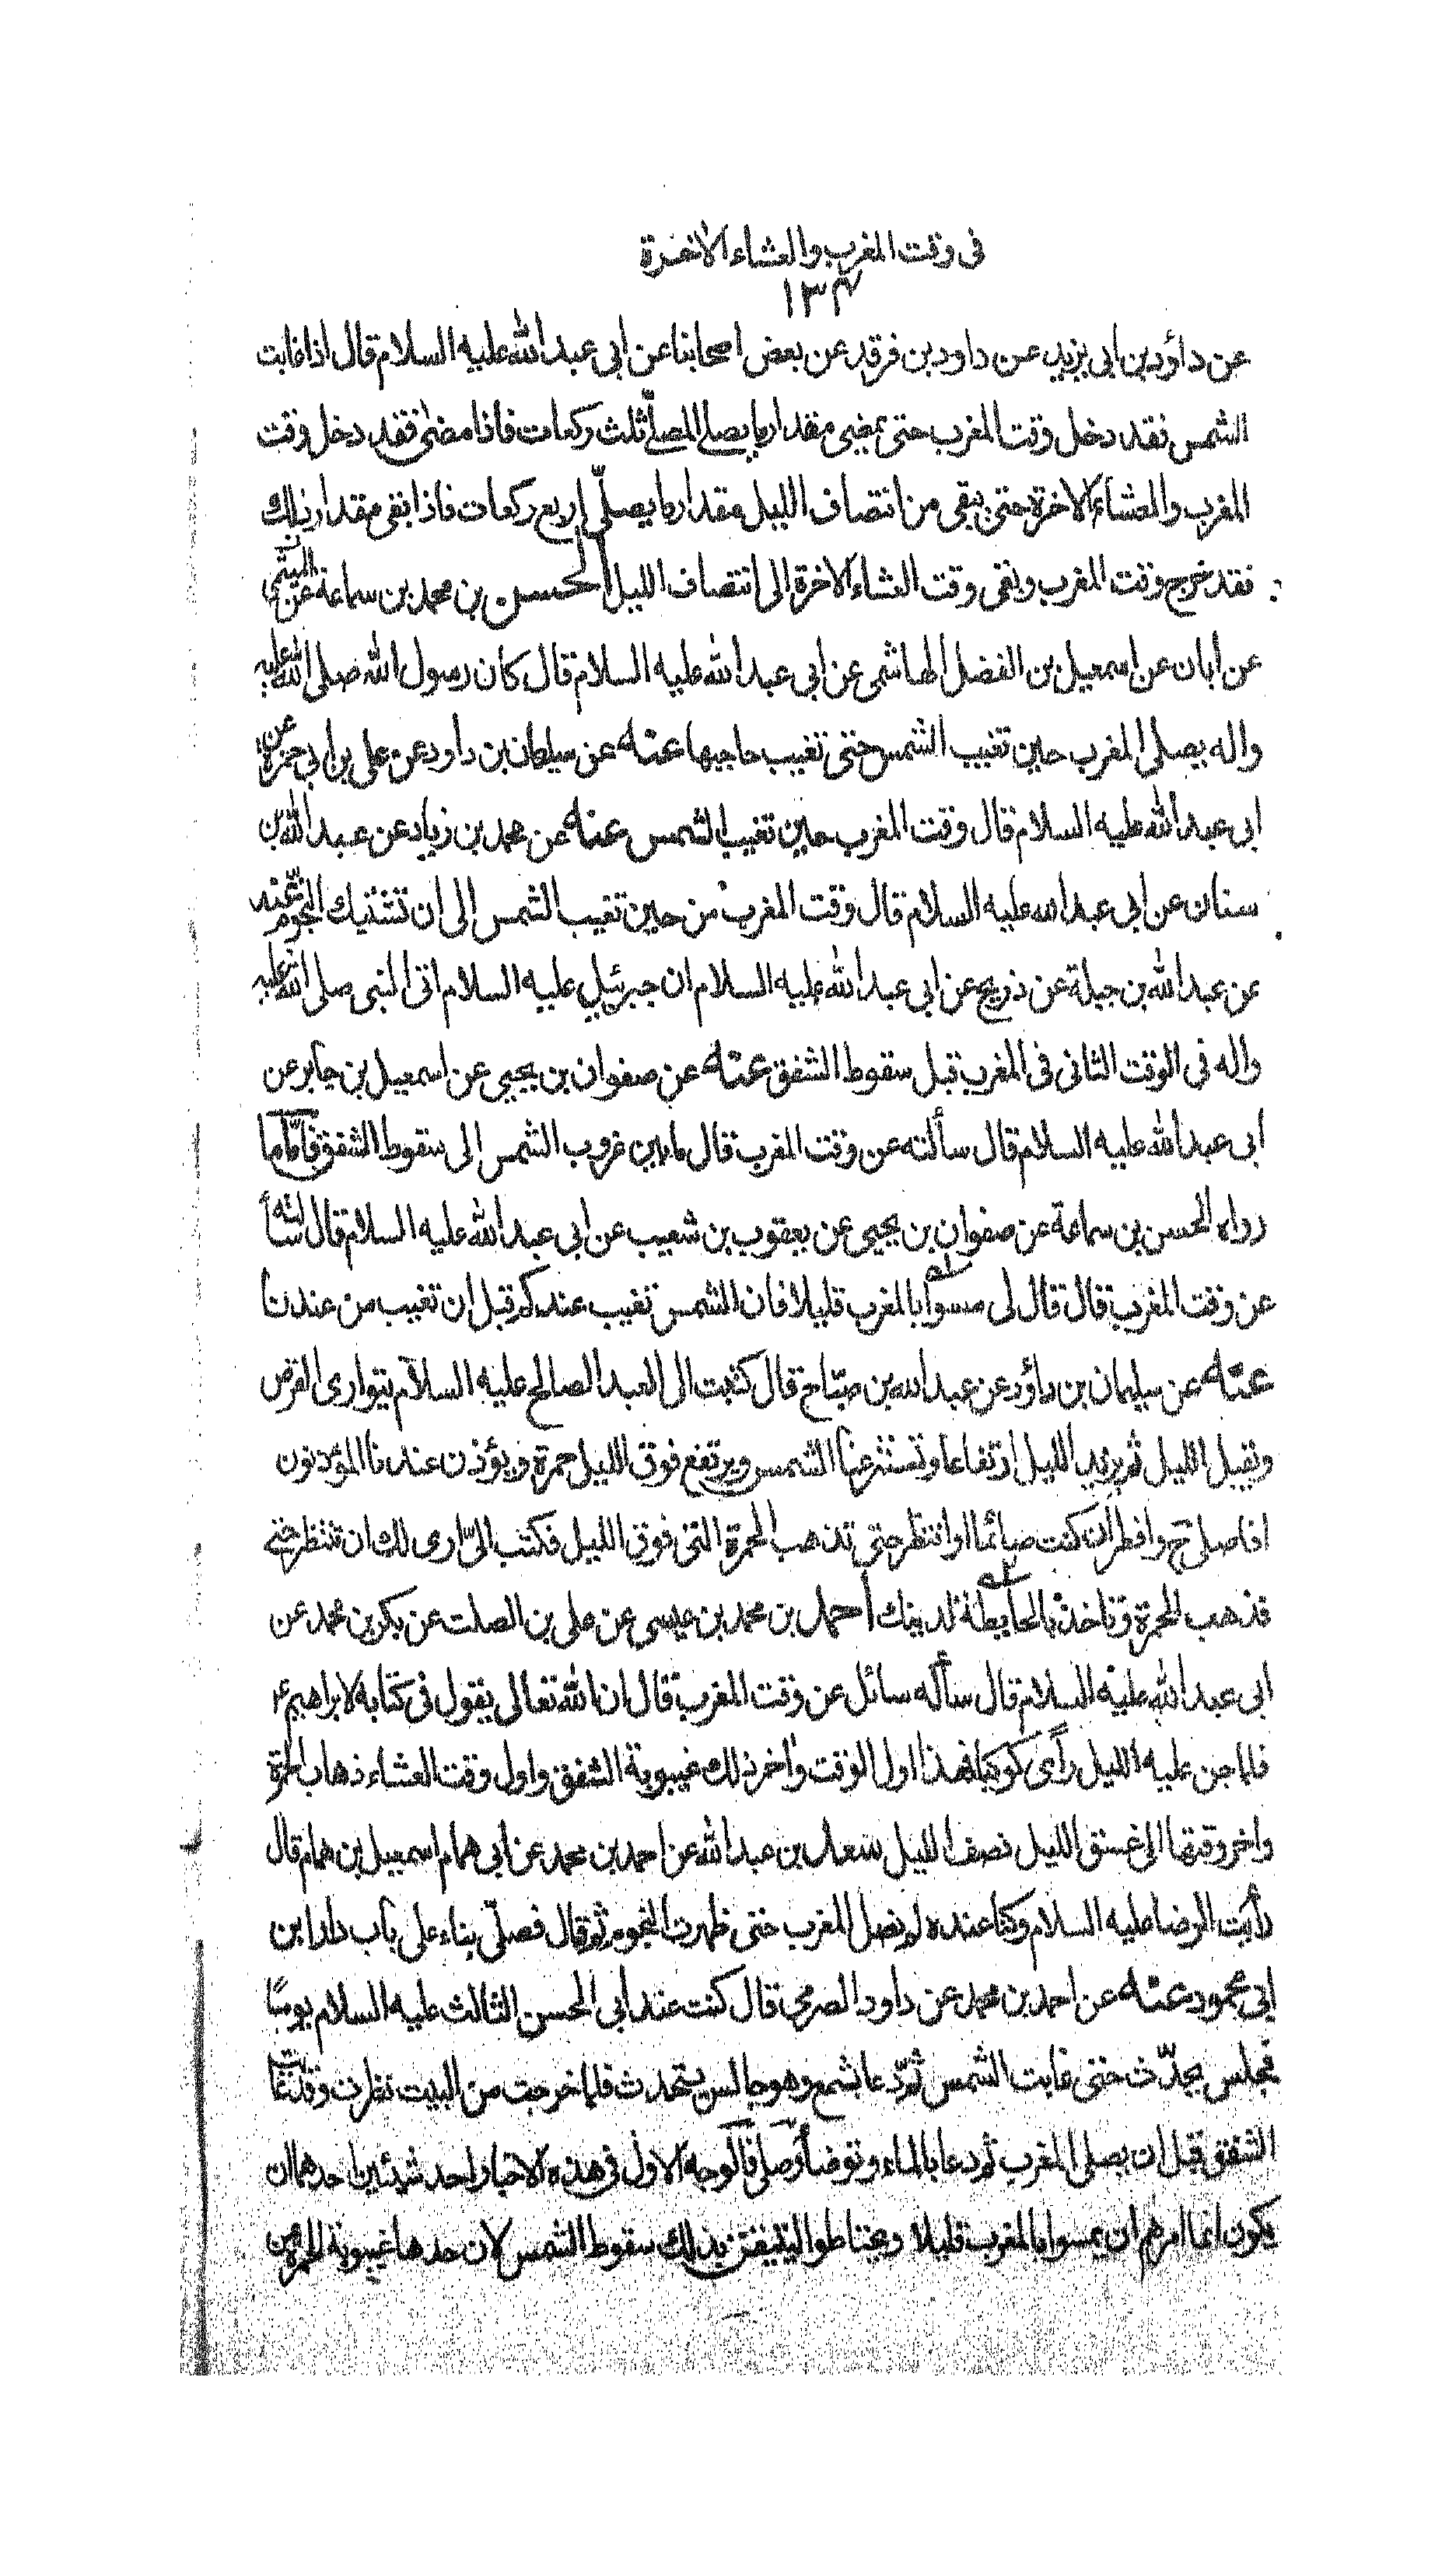 فى وقت المغرب والعشاء الاخرة
١٣٤
عن داؤد بن ابى يزيد عن داود بن فرقد عن بعض اصحابنا عن ابى عبد الله عليه السلام قال اذا غابت
الشمس فقد دخل وقت المغرب حتى يمضى مقدار ما يصلى المصلّى ثلث ركعات فاذا مضى فقد دخل وقت
المغرب والعشاء الاخرة حتى يبقى من انتصاف الليل مقدار ما يصلّى اربع ركعات فاذا بقى مقدار ذلك
فقد خرج وقت المغرب وبقى وقت العشاء الاخرة الى انتصاف الليل الحسن بن محمد بن سماعة عن الميثمى
عن ابان عن اسمعيل بن الفضل الهاشمى عن ابى عبد الله عليه السلام قال كان رسول الله صلى الله عليه
واله يصلى المغرب حين تغيب الشمس حتى تغيب حاجبها عنه عن سليمان بن داود عن على بن ابى حمزة عن
ابى عبد الله عليه السلام قال وقت المغرب حين تغيب الشمس عنه عن محمد بن زياد عن عبد الله بن
سنان عن ابى عبد الله عليه السلام قال وقت المغرب من حين تغيب الشمس الى ان تشتبك النجوم عنه
عن عبد الله بن جبلة عن ذريح عن ابى عبد الله عليه السلام ان جبرئيل عليه السلام اتى النبى صلى الله عليه
واله فى الوقت الثانى فى المغرب قبل سقوط الشفق عنه عن صفوان بن يحيى عن اسمعيل بن جابر عن
ابى عبد الله عليه السلام قال سألته عن وقت المغرب قال ما بين غروب الشمس الى سقوط الشفق فامّا ما
رواه الحسن بن سماعة عن صفوان بن يحيى عن يعقوب بن شعيب عن ابى عبد الله عليه السلام قال سألته
عن وقت المغرب قال قال لى مسوا بالمغرب قليلا فان الشمس تغيب عندكم قبل ان تغيب من عندنا
عنه عن سليمان بن داؤد عن عبد الله بن صبّاح قال كتبت الى العبد الصالح عليه السلام يتوارى القرص
ويقبل الليل ثم يزيد الليل ارتفاعا وتستتر عنا الشمس ويرتفع فوق الليل حمرة ويؤذن عندنا المؤذنون
افاصلى ح وافطر ان كنت صائما او انتظر حتى تذهب الحمرة التى فوق الليل فكتب الىّ ارى لك ان تنتظر حتى
تذهب الحمرة وتاخذ بالحايطة لدينك احمد بن محمد بن عيسى عن على بن الصلت عن بكر بن محمد عن
ابى عبد الله عليه السلام قال سأله سائل عن وقت المغرب قال ان الله تعالى يقول فى كتابه لابراهيم ع
فلما جن عليه الليل رأى كوكبا فهذا اول الوقت واخر ذلك غيبوبة الشفق واول وقت العشاء ذهاب الحمرة
واخر وقتها الى غسق الليل نصف الليل سعد بن عبد الله عن احمد بن محمد عن ابى همام اسمعيل بن همام قال
رأيت الرضا عليه السلام وكنا عنده لم يصل المغرب حتى ظهرت النجوم ثم قال فصلّى بنا على باب دار ابن
ابى محمود عنه عن احمد بن محمد عن داود الصرمى قال كنت عند ابى الحسن الثالث عليه السلام يومًا
فجلس يحدّث حتى غابت الشمس ثم دعا بشمع وهو جالس يتحدث فلما خرجت من البيت نظرت وقد غاب
الشفق قبل ان يصلى المغرب ثم دعا بالماء وتوضأ وصلى فالوجه الاول فى هذه الاخبار احد شيئين احدهما ان
يكون انما امرهم ان يمسوا بالمغرب قليلا ويحتاطوا ليتيقن بذلك سقوط الشمس لان حدها غيبوبة الحمرة من